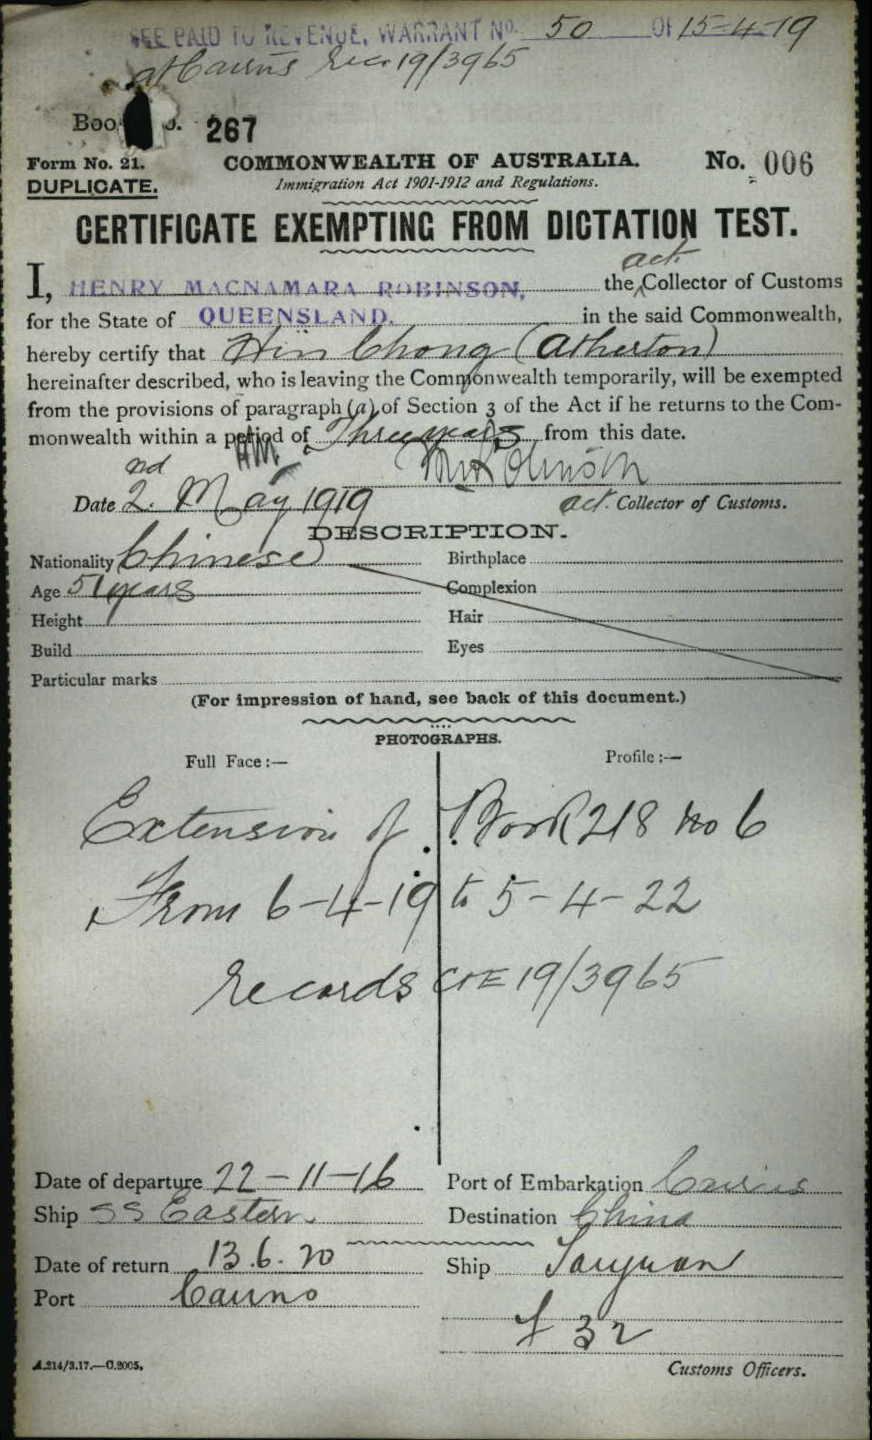 FEE PAID TO REVENUE, WARRANT No. 50 OF 15-4-19
at Cairns Rec 19/3965
Boo o. 267
Form No. 21. COMMONWEALTH OF AUSTRALIA. No. 006
DUPLICATE. Immigration Act 1901-1912 and Regulations.
CERTIFICATE EXEMPTING FROM DICTATION TEST.
I, HENRY MACNAMARA ROBINSON, the act. Collector of Customs
for the State of QUEENSLAND. in the said Commonwealth,
hereby certify that Hin Chong (Atherton)
hereinafter described, who is leaving the Commonwealth temporarily, will be exempted
from the provisions of paragraph (a) of Section 3 of the Act if he returns to the Com-
monwealth within a period of Three years from this date.
HM Robinson
Date 2nd. May 1919 act. Collector of Customs.
DESCRIPTION.
Nationality Chinese Birthplace
Age 51 years Complexion
Height Hair
Build Eyes
Particular marks
(For impression of hand, see back of this document.)
PHOTOGRAPHS.
Full Face:— Profile:—
Extension of Book 218 No 6
From 6-4-19 to 5-4-22
records CTE 19/3965
Date of departure 22-11-16 Port of Embarkation Cairns
Ship SS Eastern. Destination China
Date of return 13.6.20 Ship Taiyuan
Port Cairns
F 32
A.214/3.17.—C.2005. Customs Officers.